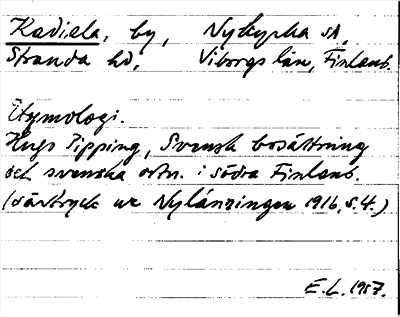 Kadiala, by, Nykyrka sn,
Stranda hd, Viborgs län, Finland.
Etymologi.
Hugo Pipping, Svensk bosättning
och svenska ortn. i södra Finland.
(särtryck ur Nylänningen 1916, s. 4.)
E. L. 1957.